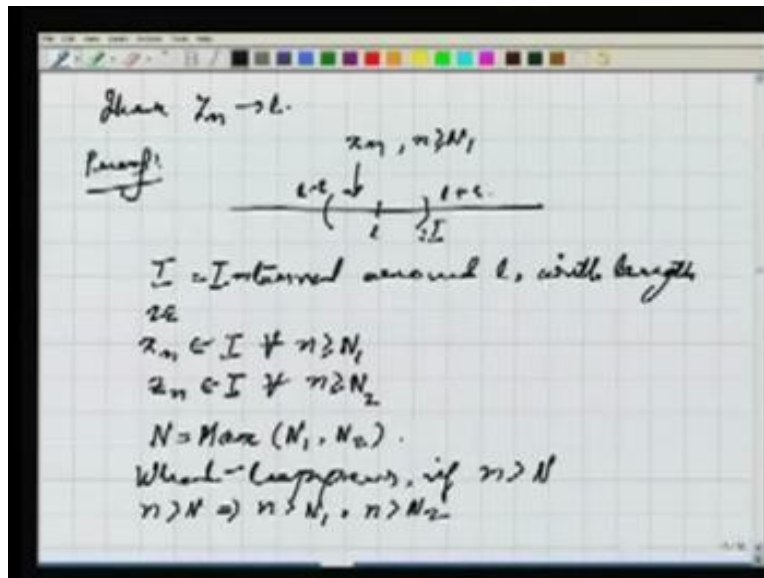 Then Zn → l.
Proof:
xn, n ≥ N1
l-ε l+ε.
l :I
I = Interval around l, with length
2ε
xn ∈ I ∀ n ≥ N1
zn ∈ I ∀ n ≥ N2
N = Max (N1, N2).
What happens, if n > N
n > N ⇒ n > N1, n > N2